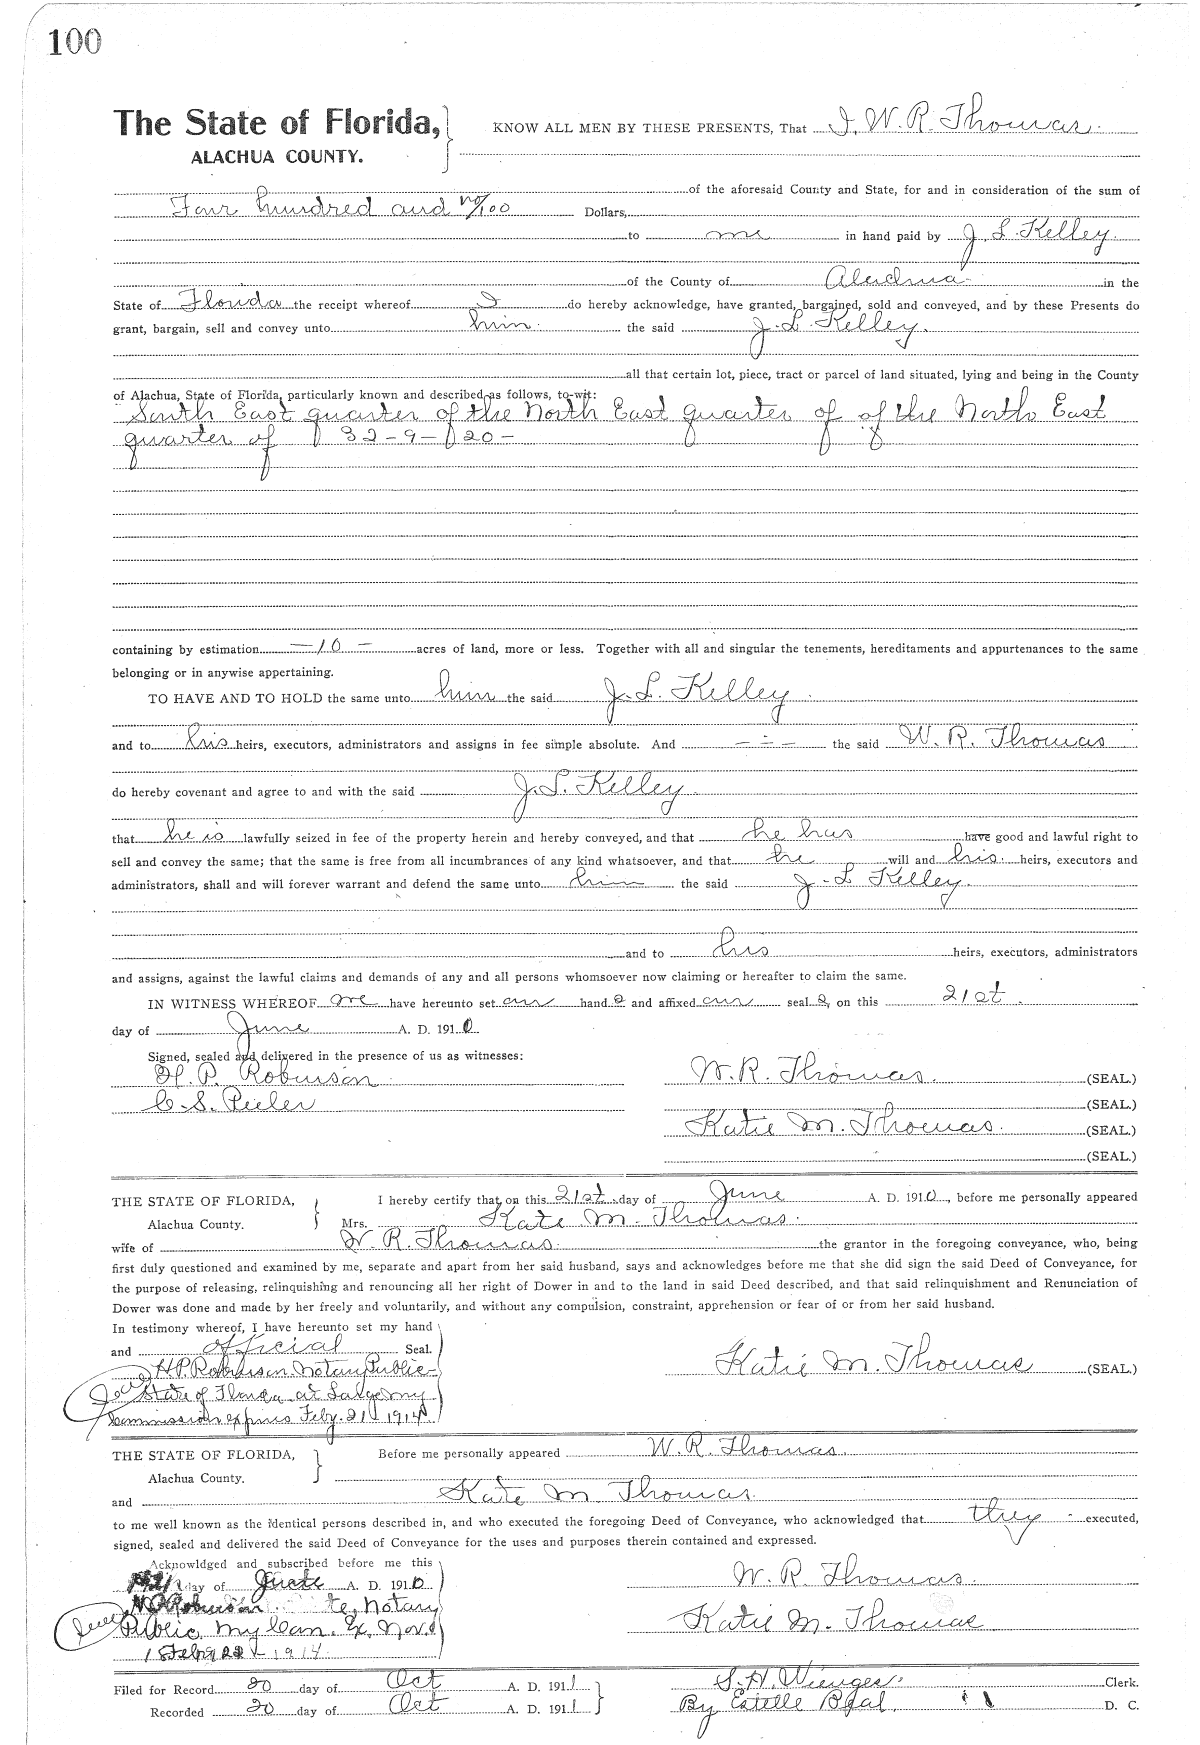 100
The State of Florida,
ALACHUA COUNTY.
KNOW ALL MEN BY THESE PRESENTS, That I, W. R. Thomas
of the aforesaid County and State, for and in consideration of the sum of
Four hundred and no/100 Dollars,
to me in hand paid by J. L. Kelley.
of the County of Alachua in the
State of Florida the receipt whereof I do hereby acknowledge, have granted, bargained, sold and conveyed, and by these Presents do
grant, bargain, sell and convey unto him the said J. L. Kelley.
all that certain lot, piece, tract or parcel of land situated, lying and being in the County
of Alachua, State of Florida, particularly known and described as follows, to-wit:
South East quarter of the North East quarter of of the North East
quarter of 32-9-20-
containing by estimation -10- acres of land, more or less. Together with all and singular the tenements, hereditaments and appurtenances to the same
belonging or in anywise appertaining.
TO HAVE AND TO HOLD the same unto him the said J. L. Kelley
and to his heirs, executors, administrators and assigns in fee simple absolute. And --- the said W. R. Thomas
do hereby covenant and agree to and with the said J. L. Kelley.
that he is lawfully seized in fee of the property herein and hereby conveyed, and that he has have good and lawful right to
sell and convey the same; that the same is free from all incumbrances of any kind whatsoever, and that he will and his heirs, executors and
administrators, shall and will forever warrant and defend the same unto him the said J. L Kelley.
and to his heirs, executors, administrators
and assigns, against the lawful claims and demands of any and all persons whomsoever now claiming or hereafter to claim the same.
IN WITNESS WHEREOF we have hereunto set our hand s and affixed our seal s, on this 21st
day of June A. D. 1910
Signed, sealed and delivered in the presence of us as witnesses:
H. P. Robinson W. R. Thomas. (SEAL.)
C. S. Peeler (SEAL.)
Katie M. Thomas. (SEAL.)
(SEAL.)
THE STATE OF FLORIDA, I hereby certify that on this 21st day of June A. D. 1910, before me personally appeared
Alachua County. Mrs. Kate M. Thomas.
wife of W. R. Thomas. the grantor in the foregoing conveyance, who, being
first duly questioned and examined by me, separate and apart from her said husband, says and acknowledges before me that she did sign the said Deed of Conveyance, for
the purpose of releasing, relinquishing and renouncing all her right of Dower in and to the land in said Deed described, and that said relinquishment and Renunciation of
Dower was done and made by her freely and voluntarily, and without any compulsion, constraint, apprehension or fear of or from her said husband.
In testimony whereof, I have hereunto set my hand
and official Seal.
H. P. Robinson Notary Public Katie M. Thomas (SEAL.)
Seal State of Florida at Large My
Commission expires Feby. 21 1914
THE STATE OF FLORIDA, Before me personally appeared W. R. Thomas.
Alachua County.
and Kate M Thomas.
to me well known as the identical persons described in, and who executed the foregoing Deed of Conveyance, who acknowledged that they executed,
signed, sealed and delivered the said Deed of Conveyance for the uses and purposes therein contained and expressed.
Acknowldged and subscribed before me this
day of June A. D. 1910 W. R. Thomas.
Seal H P Robinson Notary Katie M. Thomas
Public, My Com. Ex.
1914.
Filed for Record 20 day of Oct A. D. 1911 S. H. Wienges. Clerk.
Recorded 20 day of Oct A. D. 1911 By Estelle D. C.